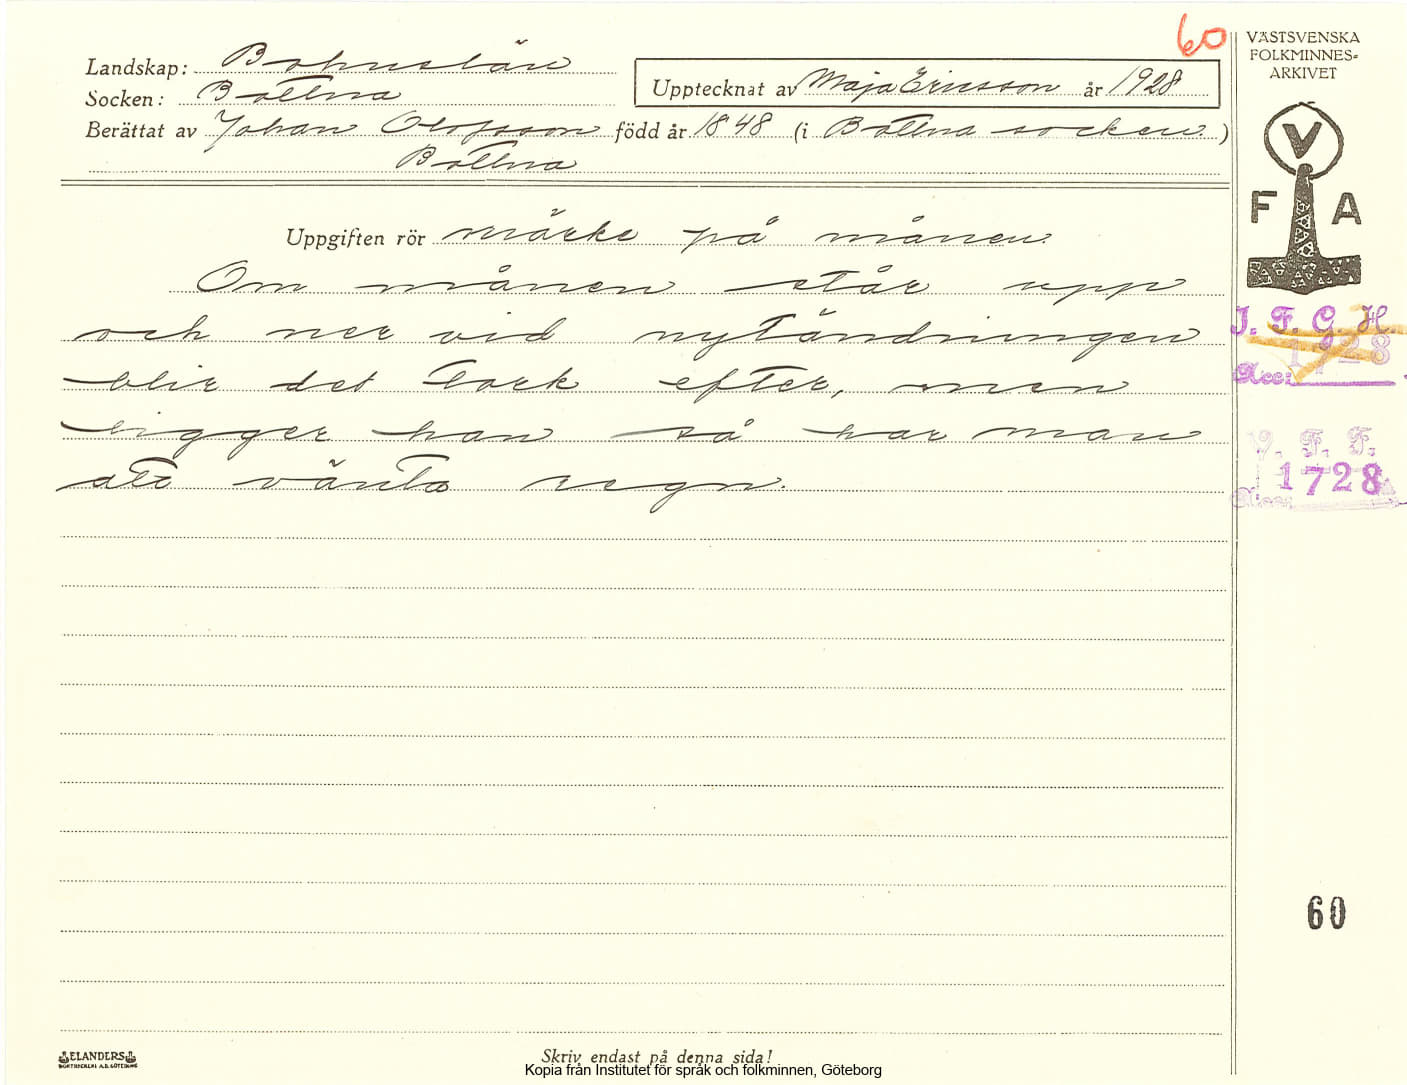 60
Landskap: Bohuslän
Socken: Bottna
Upptecknat av Maja Ericsson år 1928
Berättat av Johan Olofsson född år 1848 (i Bottna socken)
Bottna
Uppgiften rör märke på månen.
Om månen står upp
och ner vid nytändningen
blir det tork efter, men
ligger han så har man
att vänta regn.
VÄSTSVENSKA
FOLKMINNES-
ARKIVET
V
F A
I. F. G. H.
1728
Acc:
V. F. F.
1728
Acc:
60
ELANDERS
BOKTRYCKERI A.B. GÖTEBORG
Skriv endast på denna sida!
Kopia från Institutet för språk och folkminnen, Göteborg